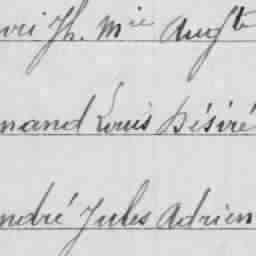 Th. Mie Augte
nand Louis Désiré
ndré Jules Adrien